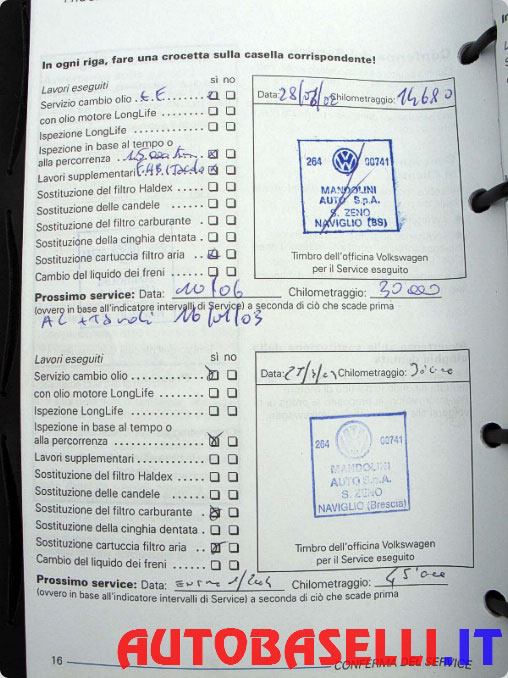 In ogni riga, fare una crocetta sulla casella corrispondente!
Lavori eseguiti sì no
Servizio cambio olio
con olio motore LongLife
Ispezione LongLife
Ispezione in base al tempo o
alla percorrenza
Lavori supplementari
Sostituzione del filtro Haldex
Sostituzione delle candele
Sostituzione del filtro carburante
Sostituzione della cinghia dentata
Sostituzione cartuccia filtro aria
Cambio del liquido dei freni
Data: Chilometraggio: 14680
264 00741
MANDOLINI
AUTO S.p.A.
S. ZENO
NAVIGLIO (BS)
Timbro dell'officina Volkswagen
per il Service eseguito
Prossimo service: Data: 10/06 Chilometraggio: 30000
(ovvero in base all'indicatore intervalli di Service) a seconda di ciò che scade prima
16/01/03
Lavori eseguiti sì no
Servizio cambio olio
con olio motore LongLife
Ispezione LongLife
Ispezione in base al tempo o
alla percorrenza
Lavori supplementari
Sostituzione del filtro Haldex
Sostituzione delle candele
Sostituzione del filtro carburante
Sostituzione della cinghia dentata
Sostituzione cartuccia filtro aria
Cambio del liquido dei freni
Data: Chilometraggio: 30'000
264 00741
MANDOLINI
AUTO S.p.A.
S. ZENO
NAVIGLIO (Brescia)
Timbro dell'officina Volkswagen
per il Service eseguito
Prossimo service: Data: Chilometraggio: 45'000
(ovvero in base all'indicatore intervalli di Service) a seconda di ciò che scade prima
16 CONFERMA DEL SERVICE
AUTOBASELLI.IT